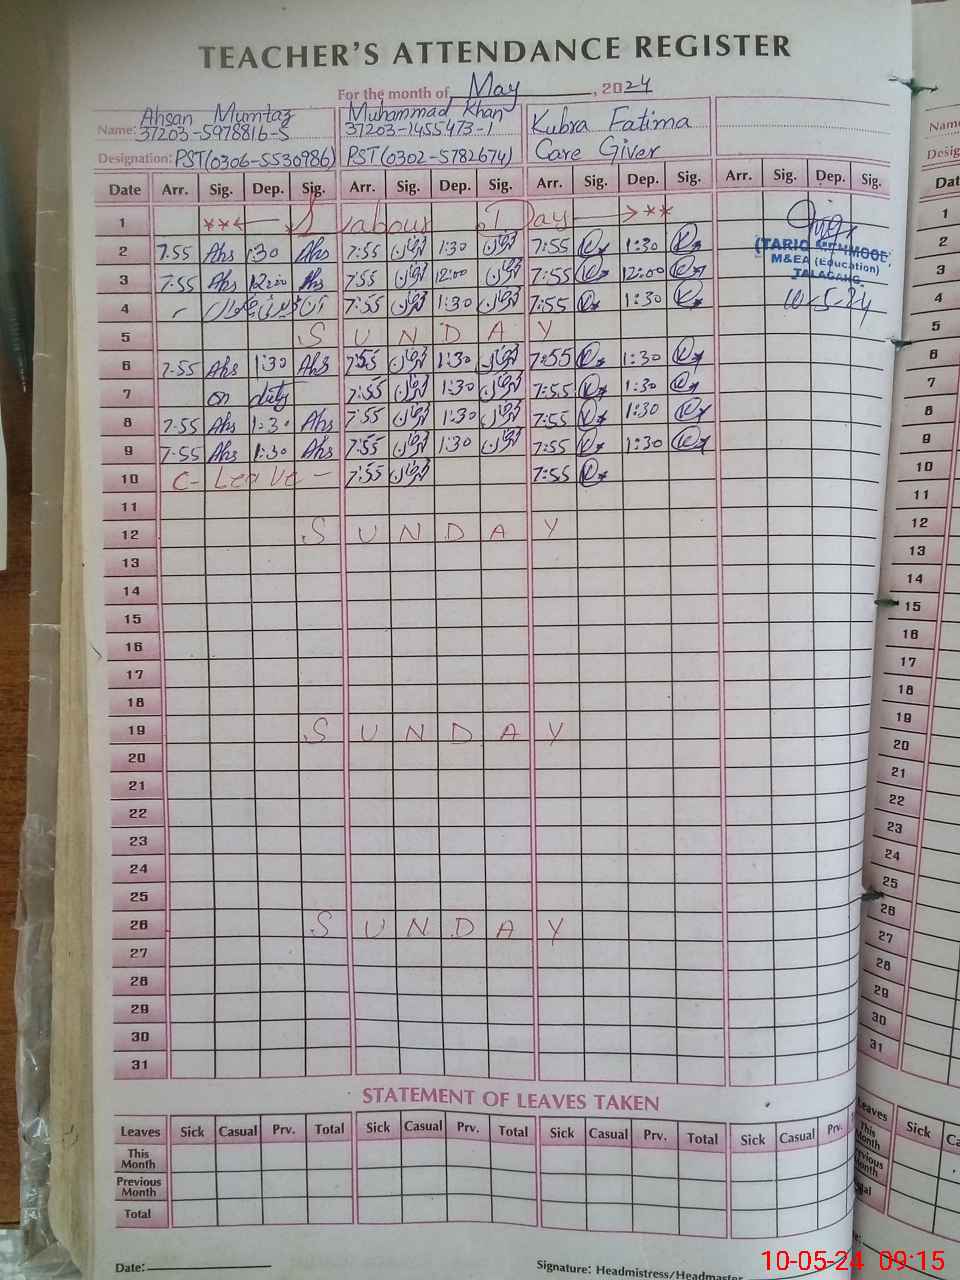 TEACHER'S ATTENDANCE REGISTER
For the month of May, 2024
Name: Ahsan Mumtaz Muhammad Khan Kubra Fatima Name
37203-5978816-5 37203-1455473-1
Designation: PST(0306-5530986) PST(0302-5782674) Care Giver
Date Arr. Sig. Dep. Sig. Arr. Sig. Dep. Sig. Arr. Sig. Dep. Sig. Arr. Sig. Dep. Sig.
1 **← Labour Day →** 1
2 7.55 Ahs 1:30 Ahs 7:55 1:30 7:55 1:30 2
(TARIQ MEHMOOD)
M&EA (Education)
TALAGANG
3 7.55 Ahs 12:00 Ahs 7:55 12:00 7:55 12:00 3
4 7:55 1:30 7:55 1:30 10-5-24 4
5 S U N D A Y 5
6 7.55 Ahs 1:30 Ahs 7:55 1:30 7:55 1:30 6
7 on duty 7:55 1:30 7:55 1:30 7
8 7.55 Ahs 1:30 Ahs 7:55 1:30 7:55 1:30 8
9 7.55 Ahs 1:30 Ahs 7:55 1:30 7:55 1:30 9
10 C- Leave - 7:55 7:55 10
11 11
12 S U N D A Y 12
13 13
14 14
15 15
16 16
17 17
18 18
19 S U N D A Y 19
20 20
21 21
22 22
23 23
24 24
25 25
26 S U N D A Y 26
27 27
28 28
29 29
30 30
31 31
STATEMENT OF LEAVES TAKEN
Leaves Sick Casual Prv. Total Sick Casual Prv. Total Sick Casual Prv. Total Sick Casual Prv. Leaves Sick
This Month This Month
Previous Month
Total
Date: Signature: Headmistress/Headmaster
10-05-24 09:15